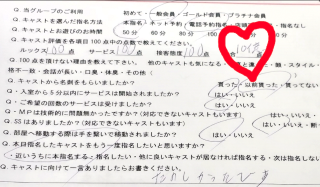 Q. 当グループのご利用 初めて・一般会員・ゴールド会員・プラチナ会員
Q. キャストを選んだ指名方法 本指名・ネット予約・電話予約
Q. キャストとお遊びのお時間 50分 60分 80分 100分
Q. キャスト評価を各項目100点中の点数で教えてください。
ルックス 100点 サービス 100点 接客態度
Q. 100点を頂けない理由を教えて下さい。 他の
格不一致・会話が長い・口臭・体臭・その他(
Q. キャストから名刺をもらいましたか? 貰った・以前貰った・貰ってない
Q. 入室から5分以内にサービスは開始されましたか? はい・いいえ
Q. ご希望の回数のサービスは受けましたか? はい・いいえ
Q. MPは技術的に問題無かったですか?(対応できないキャストもいます) はい・いいえ
Q. SSはありましたか?(対応できないキャストもいます) はい・いいえ
Q. 部屋へ移動する際は手を繋いで移動されましたか? はい・いいえ
Q. 本日指名したキャストをもう一度指名したいと思いますか?
・近いうちに本指名する・指名したい・他に良いキャストが居なければする・次は指名しない
Q. キャストに向けて一言ありましたらお書きください。